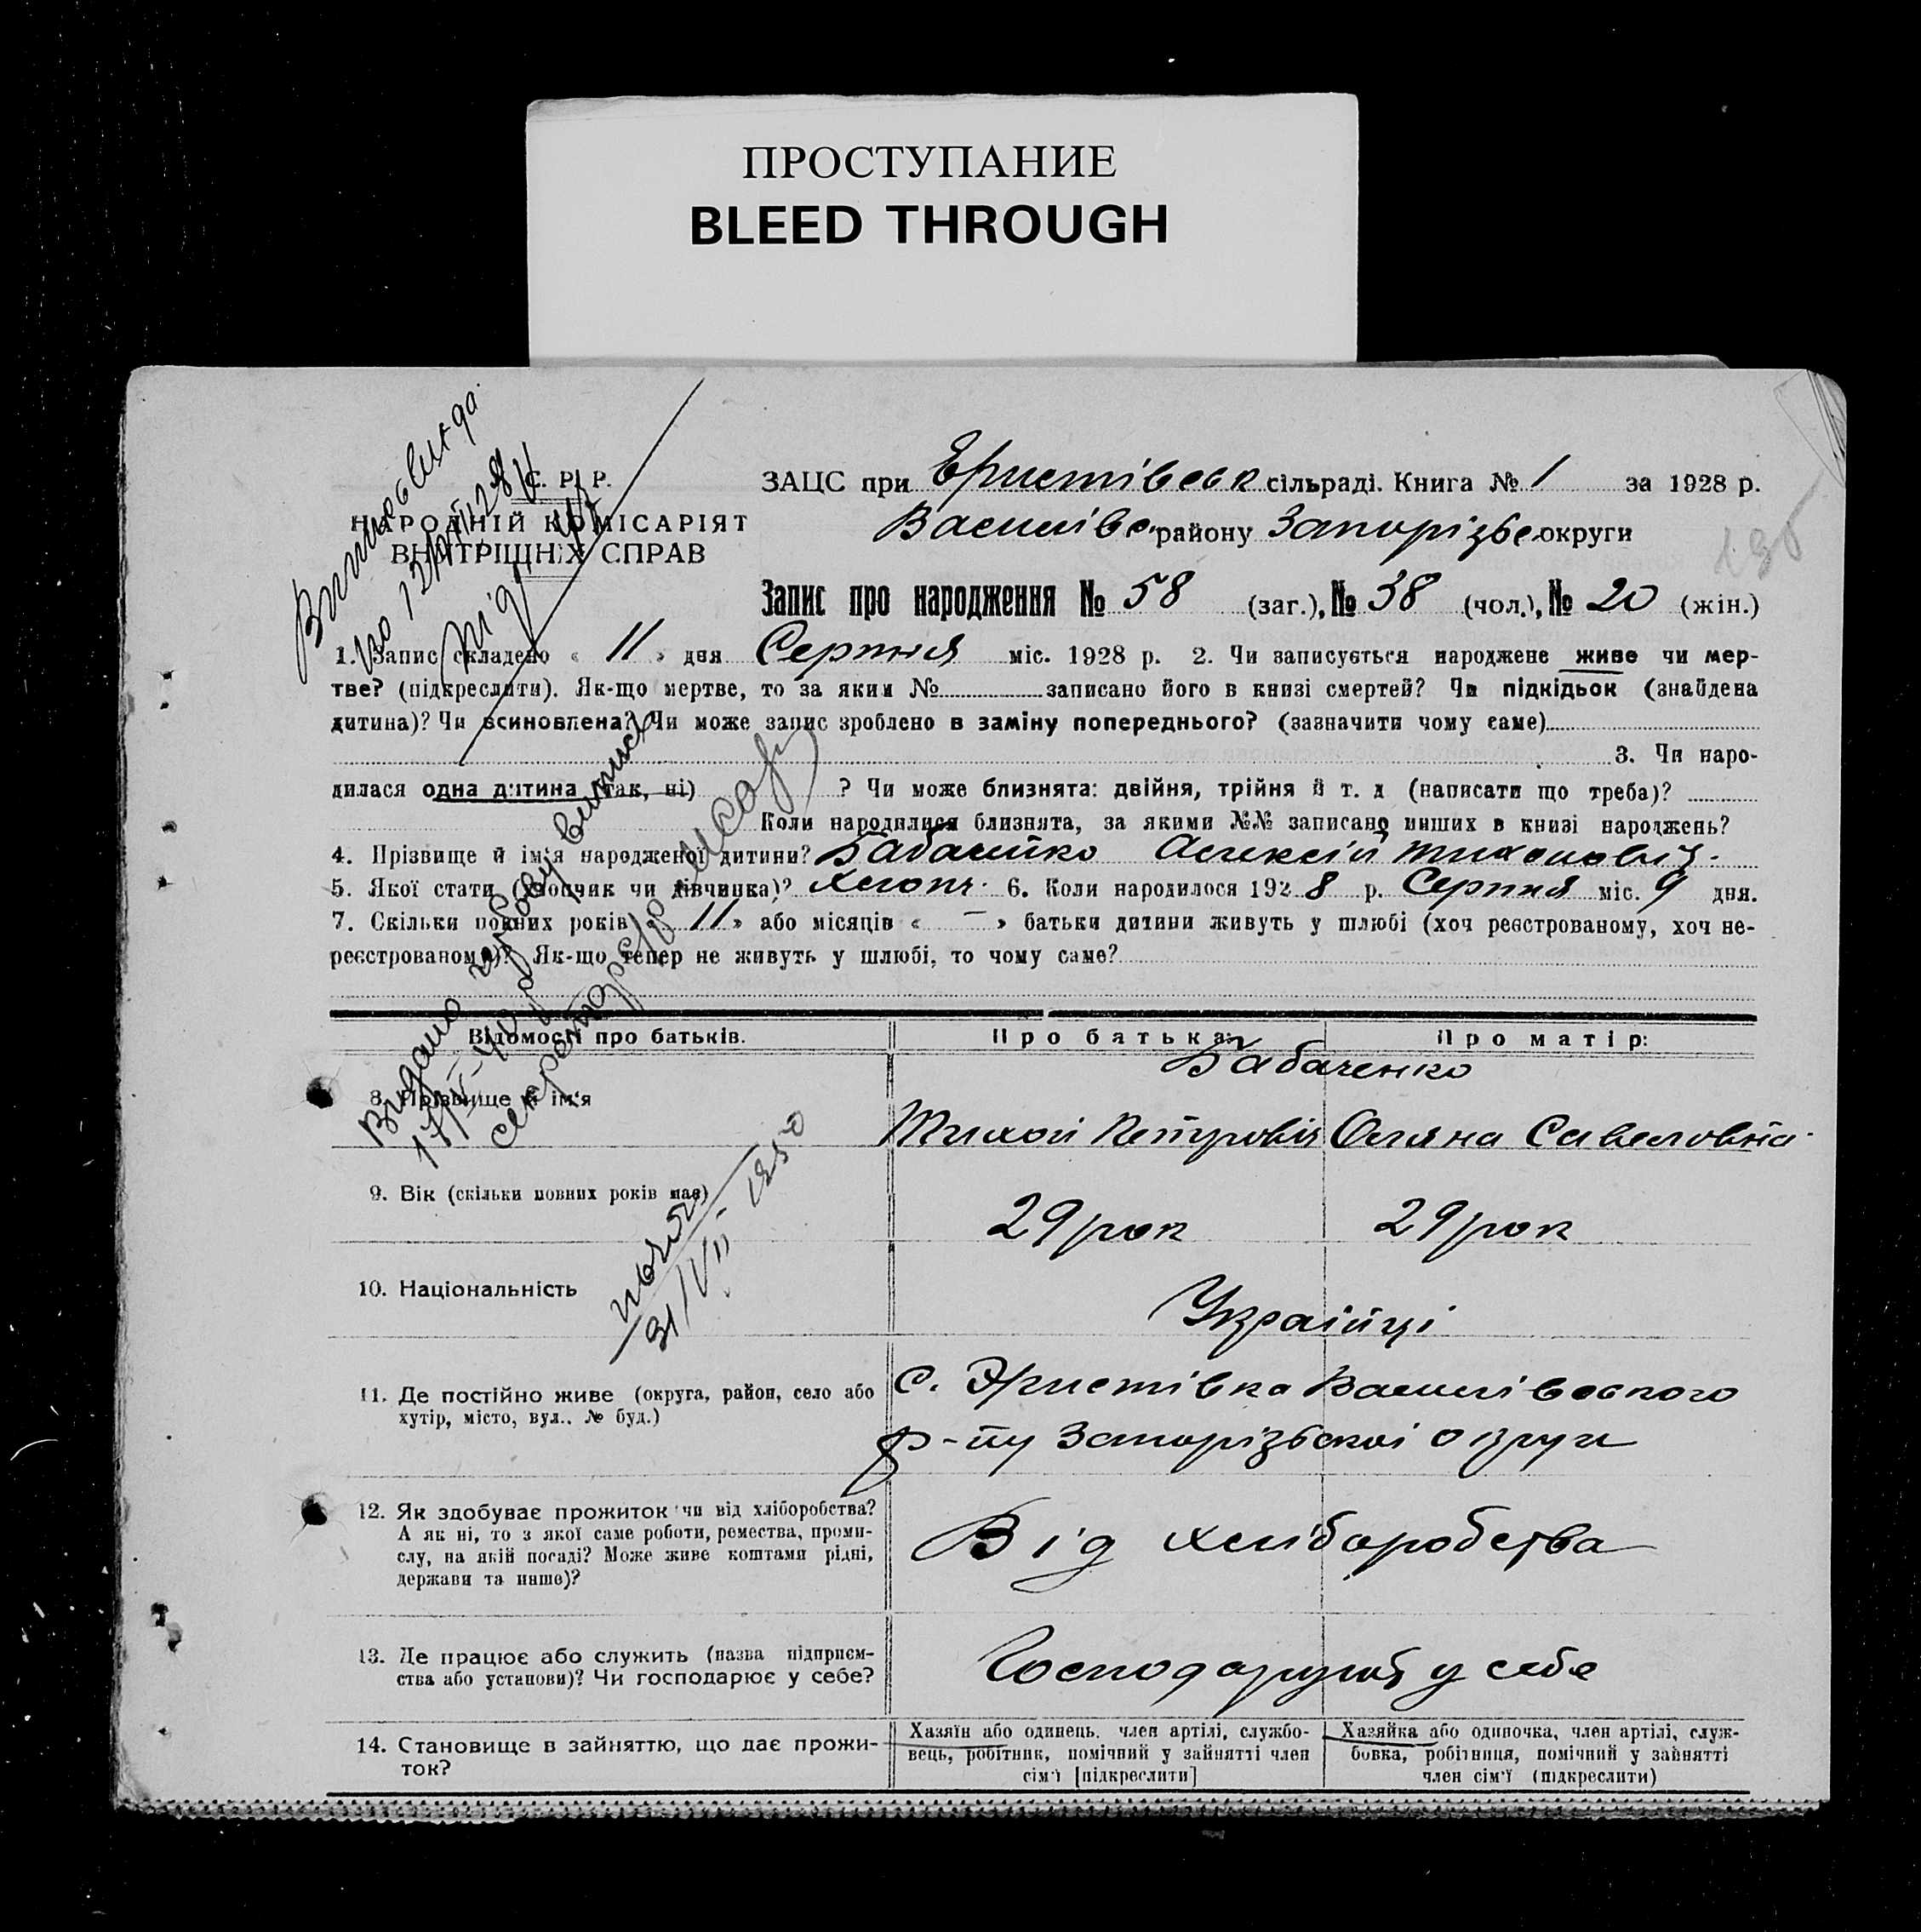 ПРОСТУПАНИЕ
BLEED THROUGH
С. Р. Р.
НАРОДНІЙ КОМІСАРІЯТ
ВНУТРІШНІХ СПРАВ
ЗАЦС при Еристівськ сільраді. Книга № 1 за 1928 р.
Василівс району Запорізьс округи
Запис про народження № 58 (заг.), № 38 (чол.), № 20 (жін.)
1. Запис складено « 11 » дня Серпня міс. 1928 р. 2. Чи записується народжене живе чи мер-
тве? (підкреслити). Як-що мертве, то за яким № записано його в книзі смертей? Чи підкідьок (знайдена
дитина)? Чи всиновлена? Чи може запис зроблено в заміну попереднього? (зазначити чому саме)
3. Чи наро-
дилася одна дитина (так, ні) ? Чи може близнята: двійня, трійня й т. д (написати що треба)?
Коли народилися близнята, за якими №№ записано инших в книзі народжень?
4. Прізвище й ім'я народженої дитини? Олексій Тихонович.
5. Якої стати (хлопчик чи дівчинка)? Хлопч. 6. Коли народилося 1928 р. Серпня міс. 9 дня.
7. Скільки повних років « 11 » або місяців « — » батьки дитини живуть у шлюбі (хоч реєстрованому, хоч не-
реєстрованому)? Як-що тепер не живуть у шлюбі, то чому саме?
Відомості про батьків.
Про батька:
Про матір:
Бабаченко
8. Прізвище й ім'я
Тихон Петрович
Оляна Савеловна
9. Вік (скільки повних років має)
29 рок
29 рок
10. Національність
Українці
11. Де постійно живе (округа, район, село або
хутір, місто, вул.. № буд.)
с. Эристівка Василівського
р-ну Запорізької округи
12. Як здобуває прожиток чи від хліборобства?
А як ні, то з якої саме роботи, ремества, проми-
слу, на якій посаді? Може живе коштами рідні,
держави та инше)?
Від хліборобства
13. Де працює або служить (назва підприєм-
ства або установи)? Чи господарює у себе?
Господарують у себе
14. Становище в зайняттю, що дає прожи-
ток?
Хазяїн або одинець. член артілі, службо-
вець, робітник, помічний у зайнятті член
сім'ї [підкреслити]
Хазяйка або одиночка, член артілі, служ-
бовка, робітниця, помічний у зайнятті
член сім'ї (підкреслити)
Видано